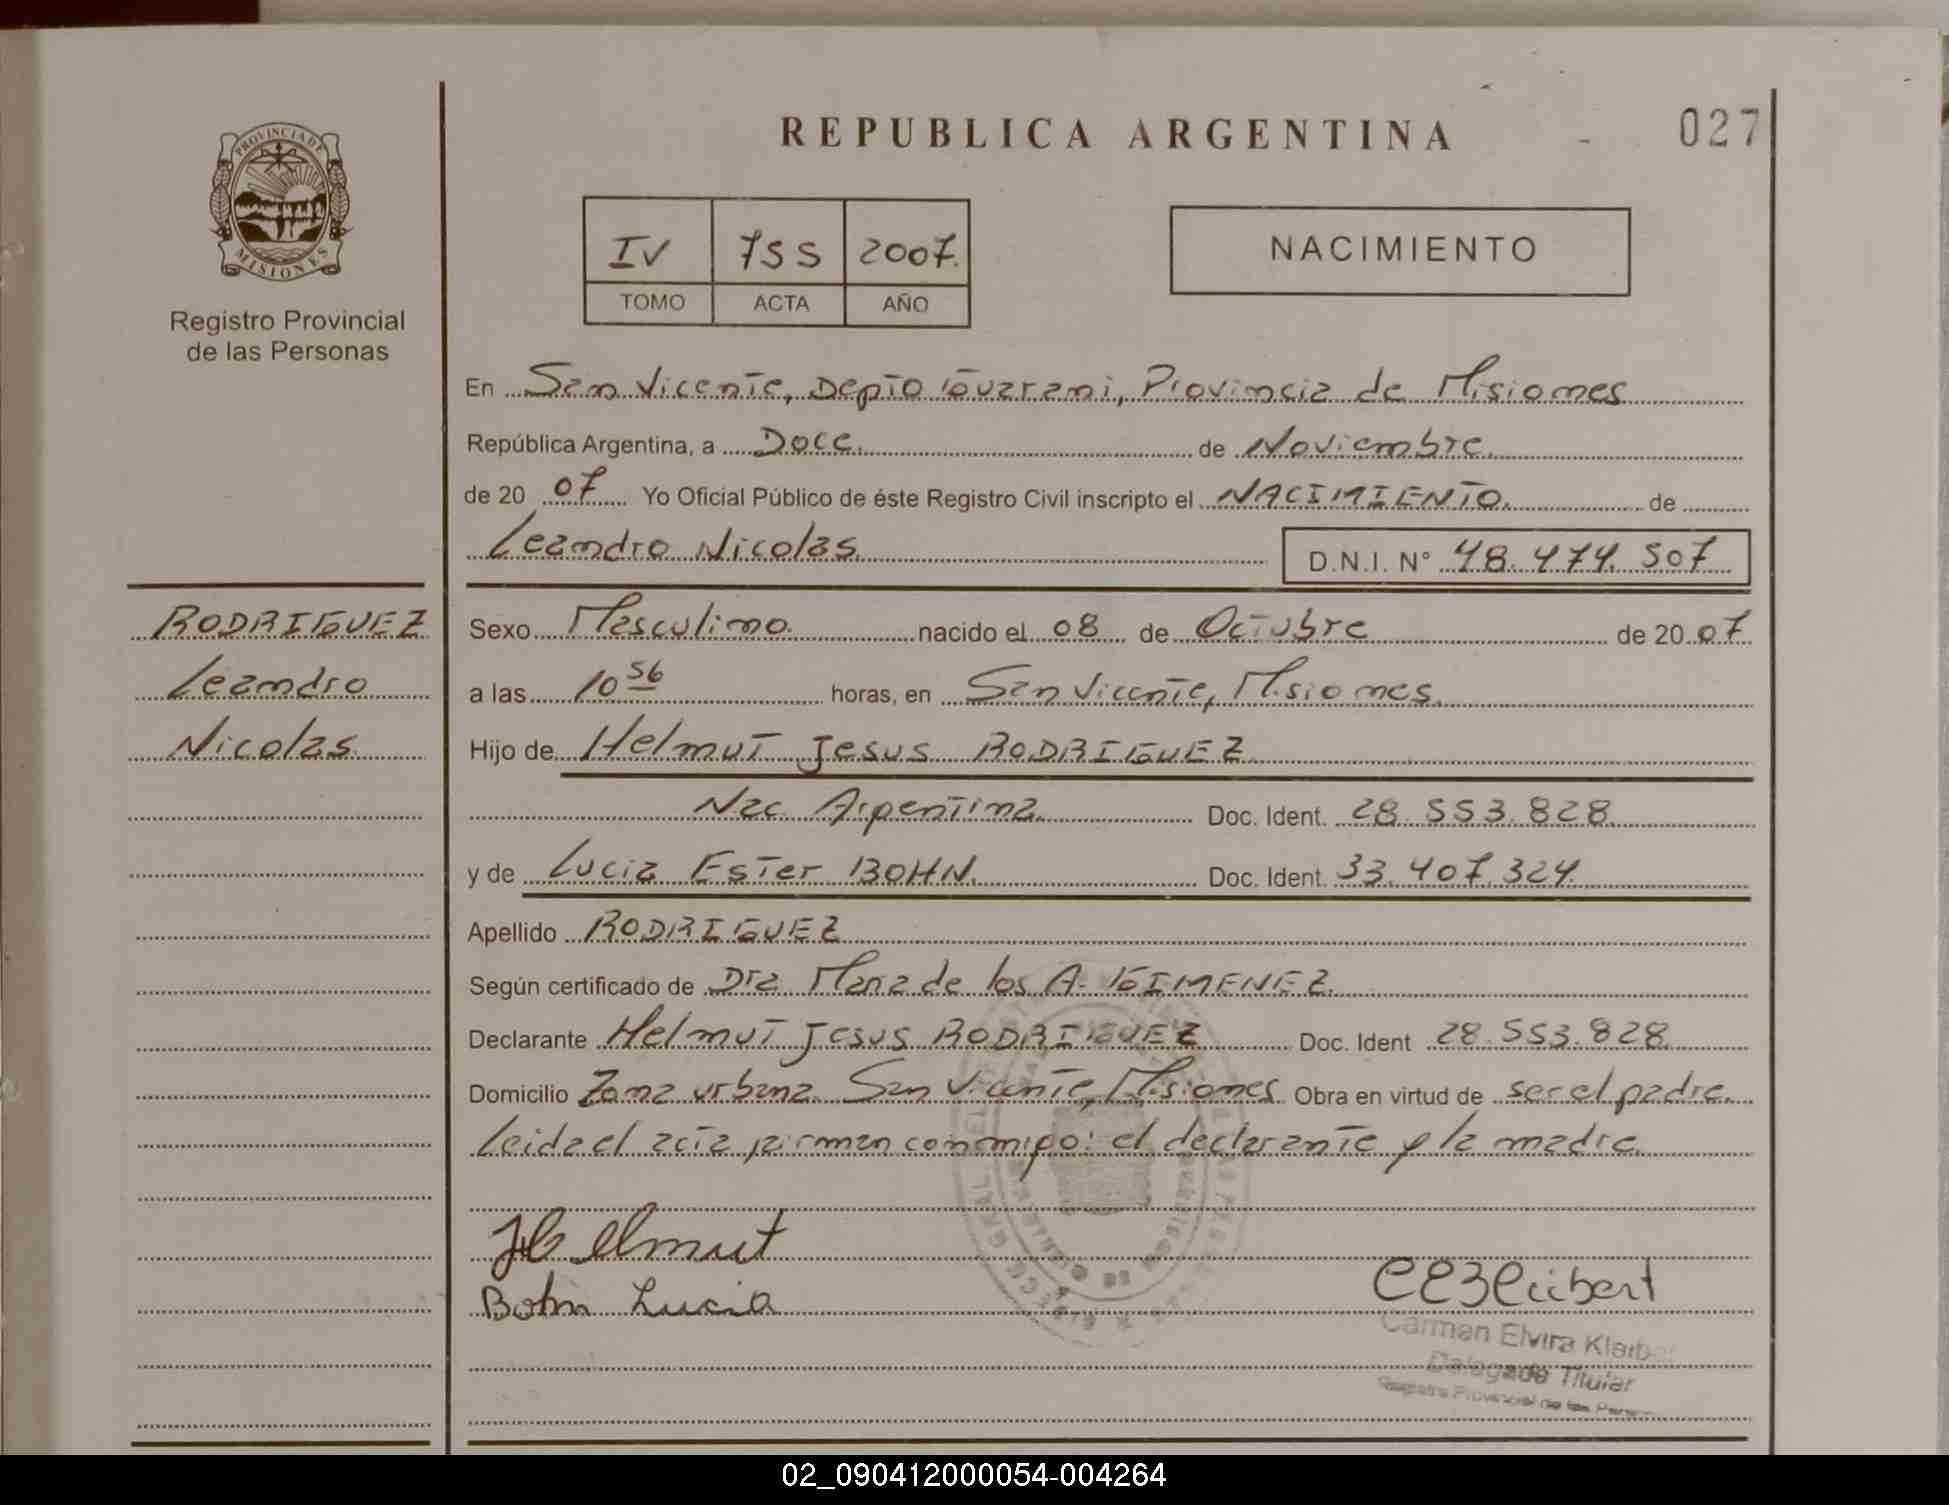 REPUBLICA ARGENTINA
027
PROVINCIA DE
MISIONES
Registro Provincial
de las Personas
IV 755 2007.
TOMO ACTA AÑO
NACIMIENTO
En San Vicente, Depto Guarani, Provincia de Misiones
República Argentina, a Doce. de Noviembre.
de 20 07 Yo Oficial Público de éste Registro Civil inscripto el NACIMIENTO. de
Leandro Nicolas. D.N.I. N° 48.474.507
RODRIGUEZ
Leandro
Nicolas.
Sexo Masculino. nacido el 08 de Octubre de 20 07
a las 10 56 horas, en San Vicente, Misiones.
Hijo de Helmut Jesus RODRIGUEZ.
Nac. Argentina. Doc. Ident. 28.553.828.
y de Lucia Ester BOHN. Doc. Ident. 33.407.324.
Apellido RODRIGUEZ
Según certificado de Dra Maria de los A. GIMENEZ.
Declarante Helmut Jesus RODRIGUEZ Doc. Ident 28.553.828.
Domicilio Zona urbana. San Vicente, Misiones Obra en virtud de ser el padre.
Leida el acta firman conmigo: el declarante y la madre.
Helmut
Bohn Lucia
Carmen Elvira
Delegada Titular
Registro Provincial de las
02_090412000054-004264